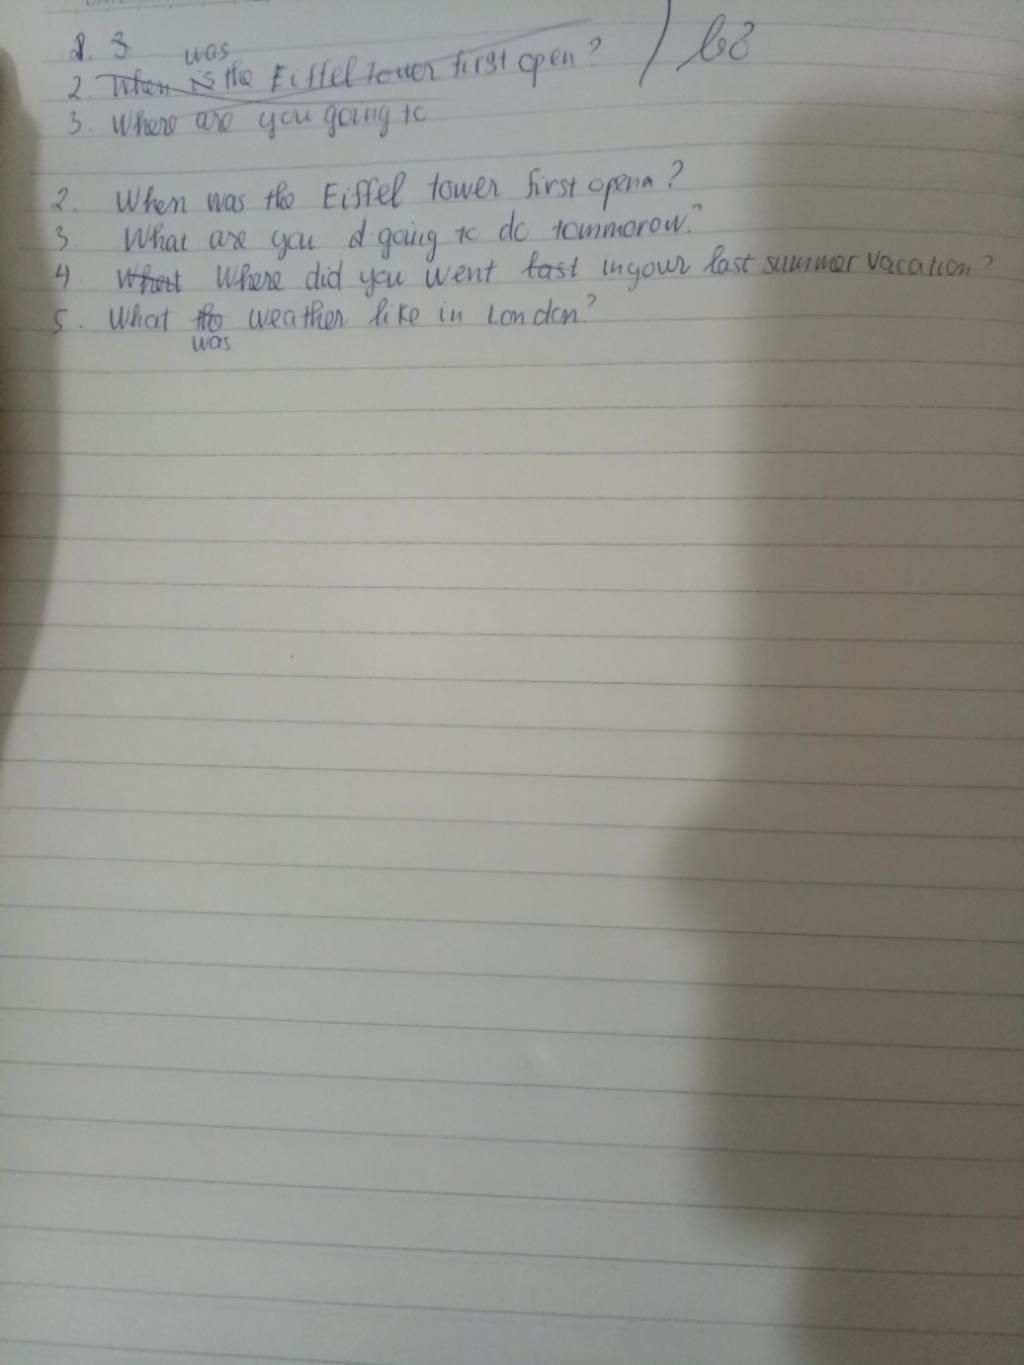 1. 3
was
2. When is the Eiffel tower first open?
3. Where are you going to
2. When was the Eiffel tower first opena?
3 What are you d going to do tommorow?
4 What Where did you went last in your last summer vacation?
5. What the weather like in London?
was